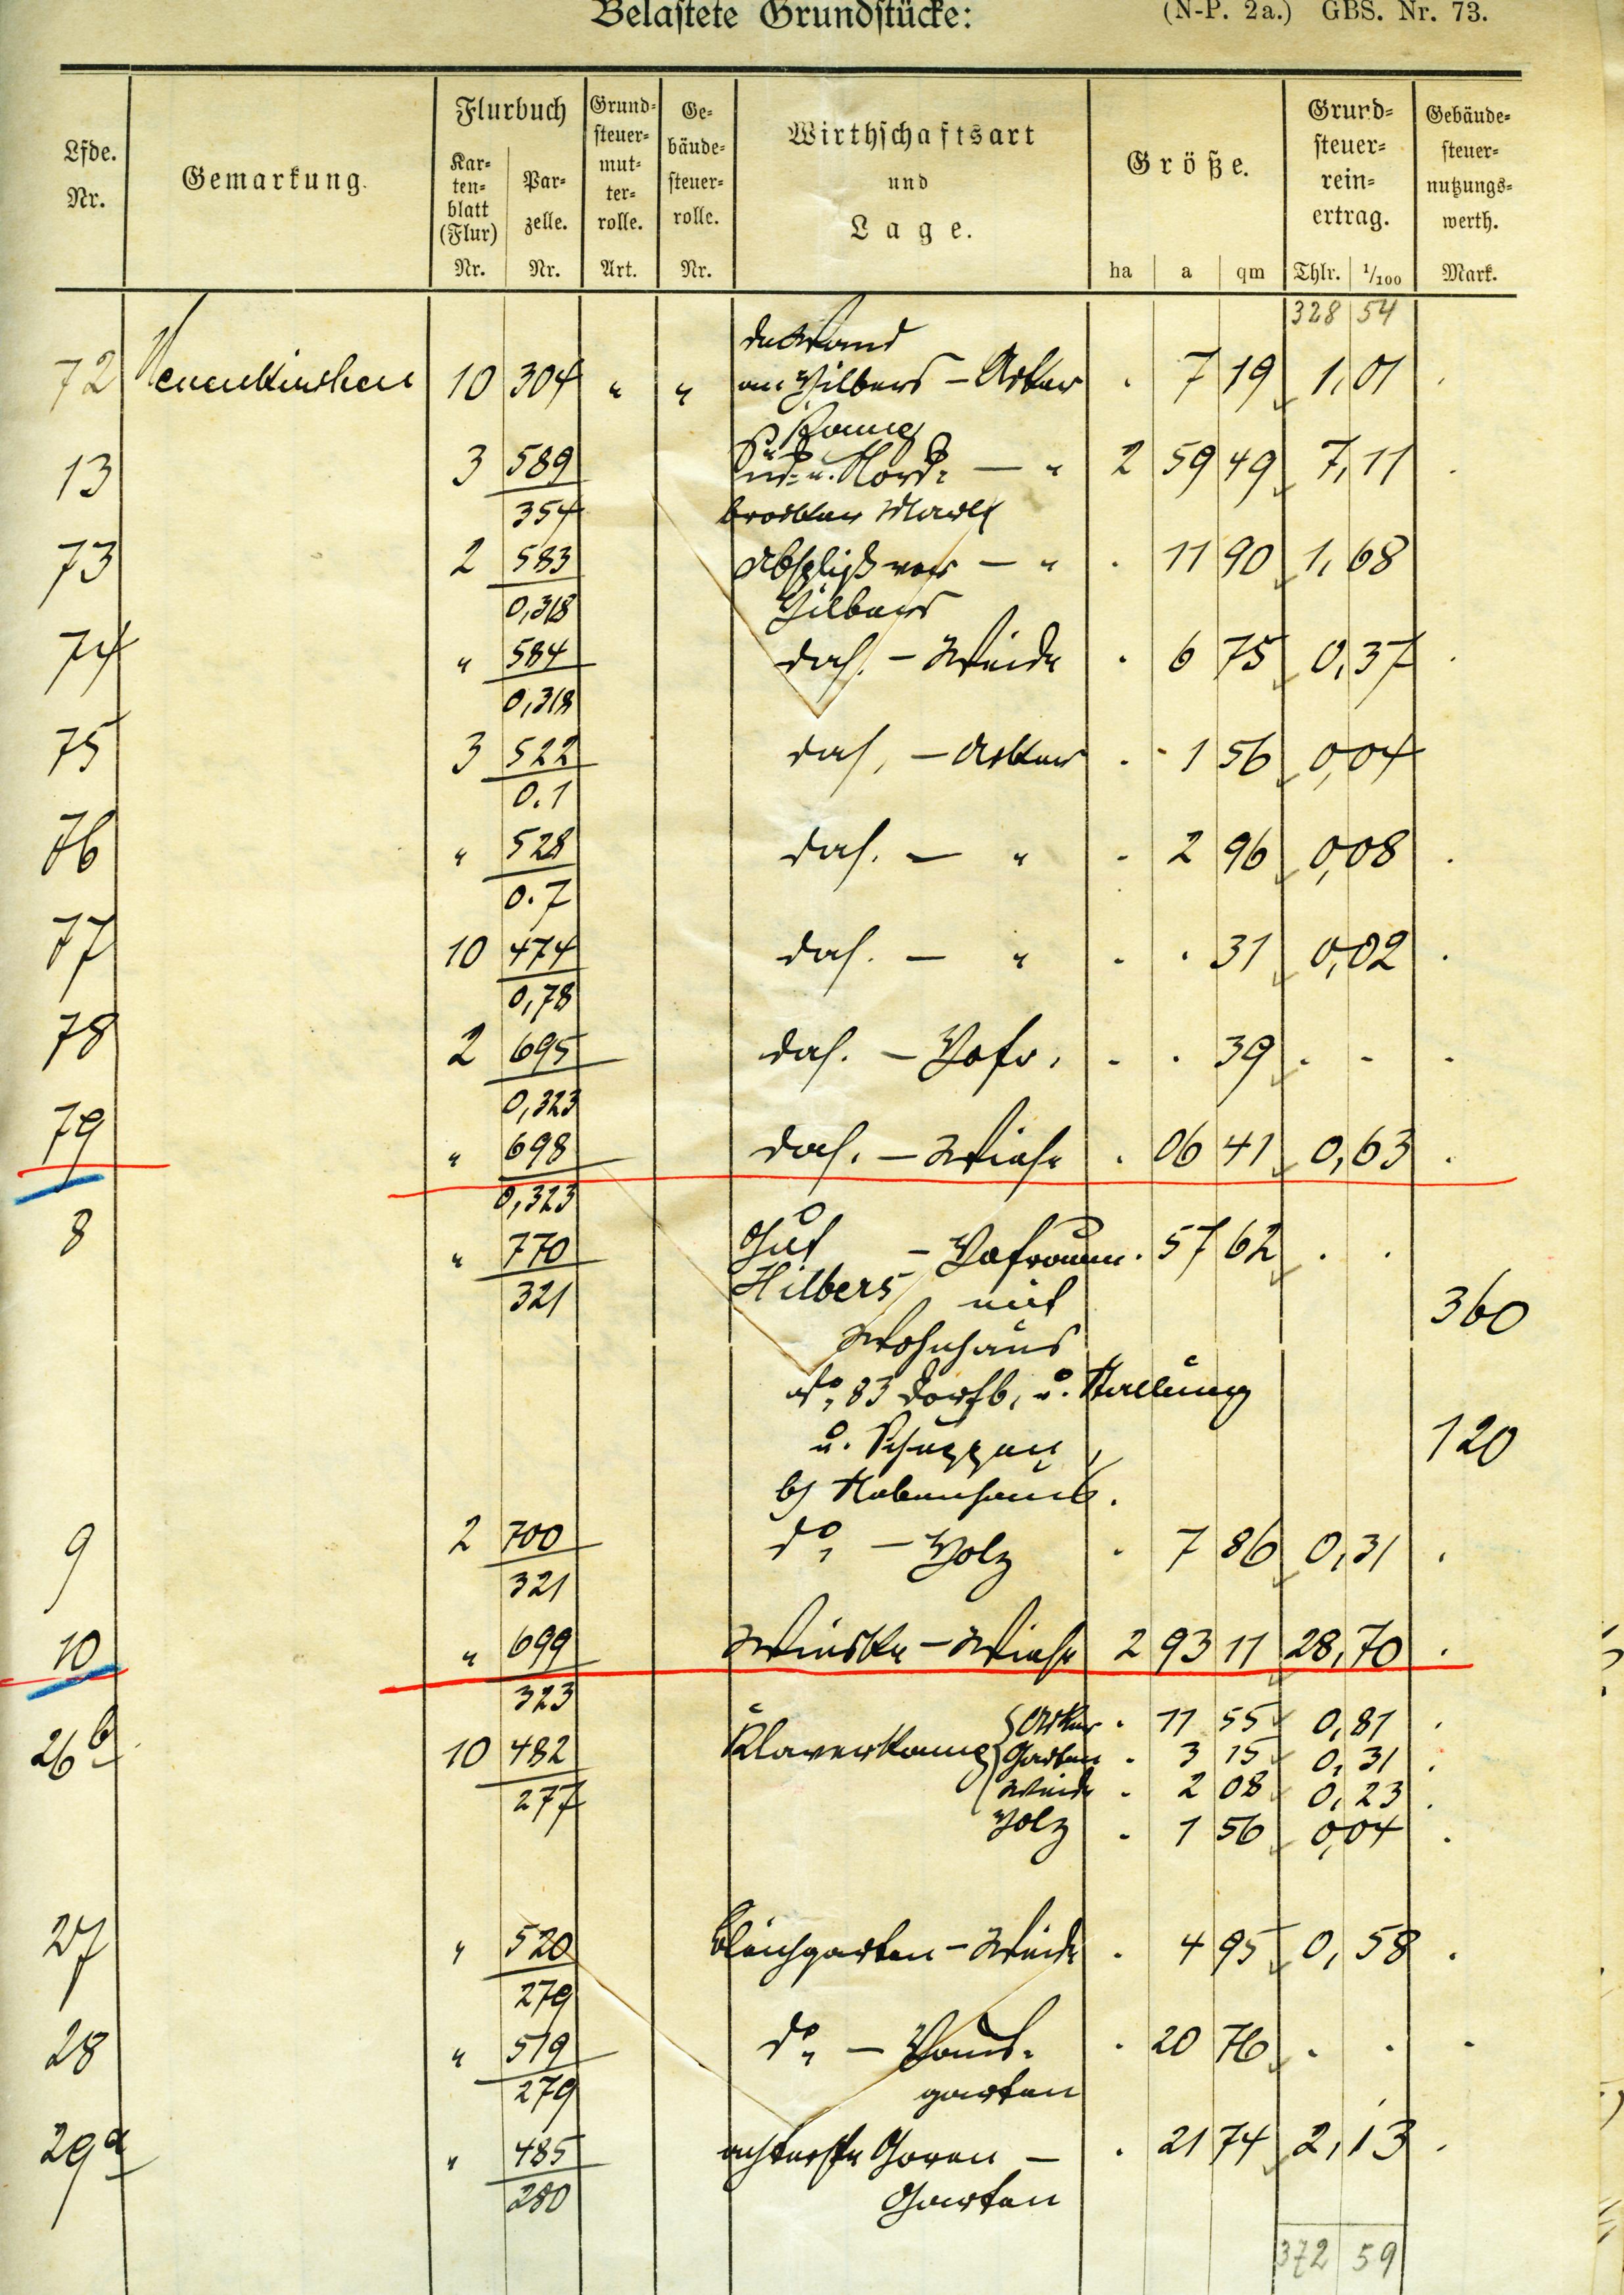 Belastete Grundstücke: (N-P. 2a.) GBS. Nr. 73.
Lfde. Nr. Gemarkung. Flurbuch Kartenblatt (Flur) Nr. Parzelle. Nr. Grundsteuermutterrolle. Art. Gebäudesteuerrolle. Nr. Wirthschaftsart und Lage. Größe. ha a qm Grundsteuerreinertrag. Thlr. 1/100 Gebäudesteuernutzungswerth. Mark.
328 54
72 Neuenkirchen 10 304 " " an Hilbers – Acker . 7 19 1,01 .
Kamp
13 3 589 Süd- u. Nord- — " 2 59 49 7,11 .
354
73 2 583 — " . 11 90 1,68
0,318 Hilbers
74 " 584 das. – Weide . 6 75 0,37 .
0,318
75 3 522 das. – Acker . 1 56 0,04
0.1
76 " 528 das. – " . 2 96 0,08 .
0.7
77 10 474 das. – " . . 31 0,02 .
0,78
78 2 695 das. – Hofr. . . 39 . - .
0,323
79 " 698 das. – Wiese . 06 41 0,63 .
0,323
8 " 770 Gut – Hofraum . 57 62 . .
321 Hilbers mit 360
Wohnhaus
No. 83 Dorfb. u. Stallung
u. Schuppen 120
b) Nebenhaus.
9 2 700 do. – Holz . 7 86 0,31 .
321
10 " 699 Wieske – Wiese 2 93 11 28,70 .
323
26b 10 482 Klaverkamp Acker . 11 55 0,81 .
277 Garten . 3 15 0,31 .
Weide . 2 08 0,23 .
Holz . 1 56 0,04 .
27 " 520 Bleichgarten – Weide . 4 95 0,58 .
279
28 " 519 do. – Haus- . 20 76 . . .
279 garten
29a " 485 achterste Goren – . 21 74 2,13 .
280 Garten
372 59